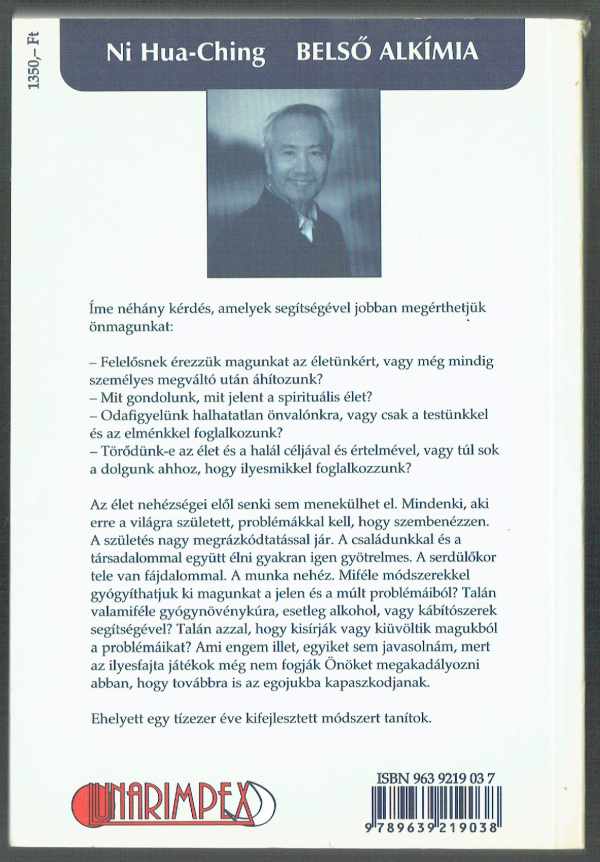 1350,– Ft
Ni Hua-Ching BELSŐ ALKÍMIA
Íme néhány kérdés, amelyek segítségével jobban megérthetjük
önmagunkat:
– Felelősnek érezzük magunkat az életünkért, vagy még mindig
személyes megváltó után áhítozunk?
– Mit gondolunk, mit jelent a spirituális élet?
– Odafigyelünk halhatatlan önvalónkra, vagy csak a testünkkel
és az elménkkel foglalkozunk?
– Törődünk-e az élet és a halál céljával és értelmével, vagy túl sok
a dolgunk ahhoz, hogy ilyesmikkel foglalkozzunk?
Az élet nehézségei elől senki sem menekülhet el. Mindenki, aki
erre a világra született, problémákkal kell, hogy szembenézzen.
A születés nagy megrázkódtatással jár. A családunkkal és a
társadalommal együtt élni gyakran igen gyötrelmes. A serdülőkor
tele van fájdalommal. A munka nehéz. Miféle módszerekkel
gyógyíthatjuk ki magunkat a jelen és a múlt problémáiból? Talán
valamiféle gyógynövénykúra, esetleg alkohol, vagy kábítószerek
segítségével? Talán azzal, hogy kisírják vagy kiüvöltik magukból
a problémáikat? Ami engem illet, egyiket sem javasolnám, mert
az ilyesfajta játékok még nem fogják Önöket megakadályozni
abban, hogy továbbra is az egojukba kapaszkodjanak.
Ehelyett egy tízezer éve kifejlesztett módszert tanítok.
LUNARIMPEX
ISBN 963 9219 03 7
9 789639 219038